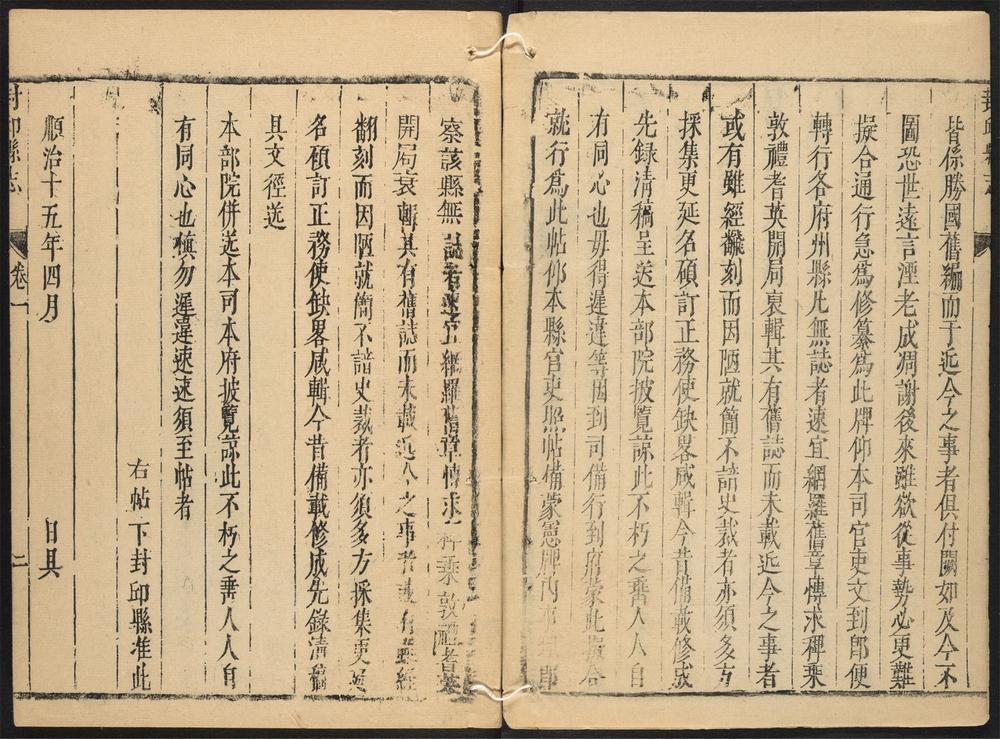 皆係勝國舊編而于近今之事者俱付闕如及今不
圖恐世遠言湮老成凋謝後來雖欲從事勢必更難
擬合通行急爲修纂爲此牌仰本司官吏文到卽便
轉行各府州縣凡無誌者速宜網羅舊章慱求稗乗
敦禮耆英開局裒輯其有舊誌而未載近今之事者
或有雖經飜刻而因陋就簡不諳史裁者亦須多方
採集更延名碩訂正務使缺畧咸輯今昔備載修成
先録淸稿呈送本部院披覽諒此不朽之𠷣人人自
有同心也毋得遲違等因到司備行到府蒙此擬合
就行爲此帖仰本縣官吏照帖備蒙憲牌內事理卽
察該縣無誌者速宜網羅舊章慱求稗乗敦禮耆英
開局裒輯其有舊誌而未載近今之事者或有雖經
翻刻而因陋就簡不諳史裁者亦須多方採集更延
名碩訂正務使缺畧咸輯今昔備載修成先錄清稿
具文徑送
本部院併送本司本府披覽諒此不朽之𠷣人人自
有同心也愼勿遲違速速須至帖者
右帖下封邱縣准此
順治十五年四月 日具
封邱縣志 卷一 二